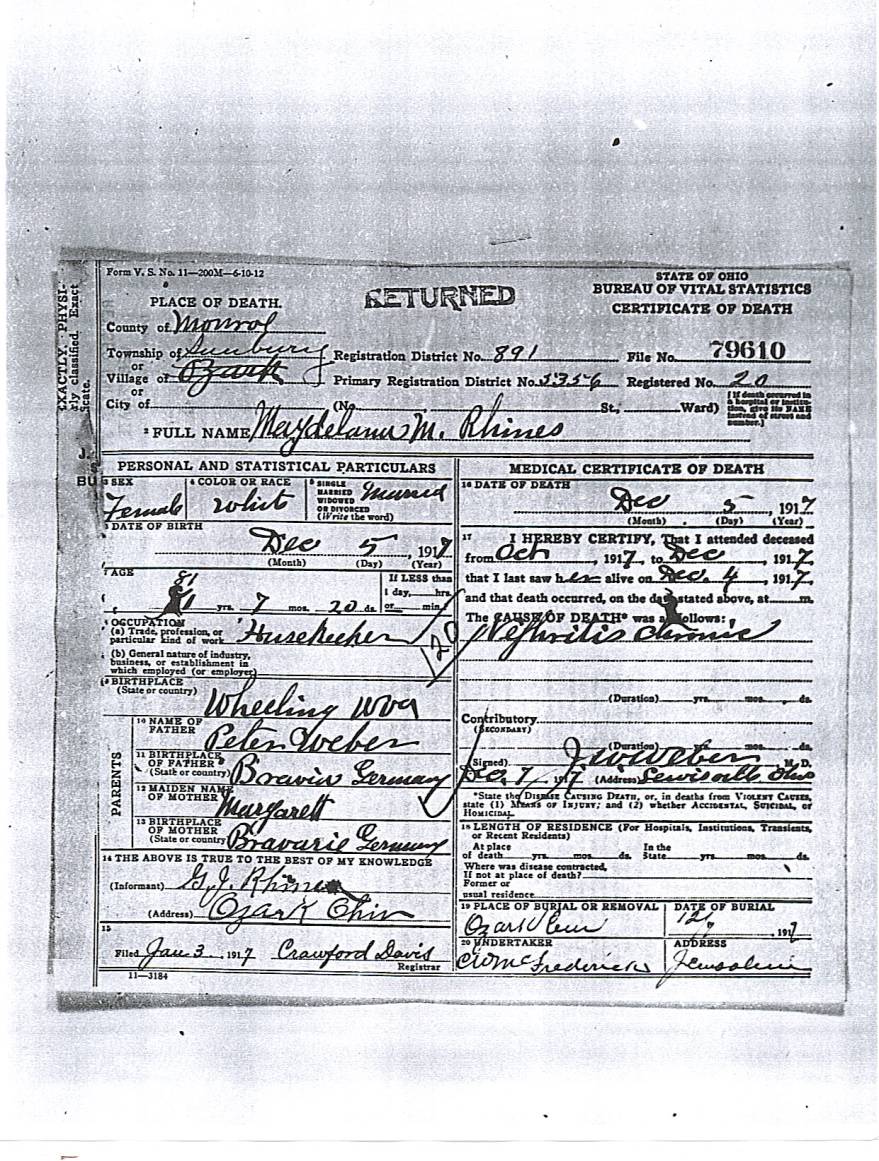 Form V. S. No. 11—200M—6-10-12
RETURNED
STATE OF OHIO
BUREAU OF VITAL STATISTICS
CERTIFICATE OF DEATH
PLACE OF DEATH.
County of Monroe
Township of Sunbury Registration District No. 891 File No. 79610
or
Village of Ozark Primary Registration District No. 5356 Registered No. 20
or
City of (No. St., Ward) [If death occurred in a hospital or institution, give its NAME instead of street and number.]
2 FULL NAME M. Rhines
EXACTLY. PHYSI-
ly classified. Exact
cate.
PERSONAL AND STATISTICAL PARTICULARS
3 SEX Female
4 COLOR OR RACE Whit
5 SINGLE MARRIED WIDOWED OR DIVORCED (Write the word) Married
DATE OF BIRTH
Dec 5, 1917
(Month) (Day) (Year)
7 AGE 81 yrs. 7 mos. 20 ds. If LESS than 1 day, hrs. or min.
OCCUPATION
(a) Trade, profession, or particular kind of work Husekeeher
(b) General nature of industry, business, or establishment in which employed (or employer)
120
9 BIRTHPLACE
(State or country) Wheeling WVa
PARENTS
10 NAME OF FATHER Peter Weber
11 BIRTHPLACE OF FATHER (State or country) Germany
12 MAIDEN NAME OF MOTHER Margarett
13 BIRTHPLACE OF MOTHER (State or country) Bravarie Germany
14 THE ABOVE IS TRUE TO THE BEST OF MY KNOWLEDGE
(Informant) G. J. Rhines
(Address) Ozark Ohio
15
Filed Jan 3, 1917 Crawford Davis
Registrar
11—3184
MEDICAL CERTIFICATE OF DEATH
16 DATE OF DEATH
Dec 5, 1917
(Month) (Day) (Year)
17 I HEREBY CERTIFY, That I attended deceased
from Oct, 1917, to Dec, 1917,
that I last saw her alive on Dec. 4, 1917,
and that death occurred, on the date stated above, at m.
The CAUSE OF DEATH* was as follows:
Nephritis chronic
(Duration) yrs. mos. ds.
Contributory
(SECONDARY)
(Duration) yrs. mos. ds.
(Signed) J. W. Weber M. D.
Dec 7, 1917 (Address) Lewisville Ohio
*State the DISEASE CAUSING DEATH, or, in deaths from VIOLENT CAUSES,
state (1) MEANS OF INJURY; and (2) whether ACCIDENTAL, SUICIDAL, or
HOMICIDAL.
18 LENGTH OF RESIDENCE (For Hospitals, Institutions, Transients,
or Recent Residents)
At place of death yrs. mos. ds. In the State yrs. mos. ds.
Where was disease contracted,
If not at place of death?
Former or
usual residence
19 PLACE OF BURIAL OR REMOVAL Ozark Cem
DATE OF BURIAL 12/7, 1917
20 UNDERTAKER Frederick
ADDRESS Jerusalem